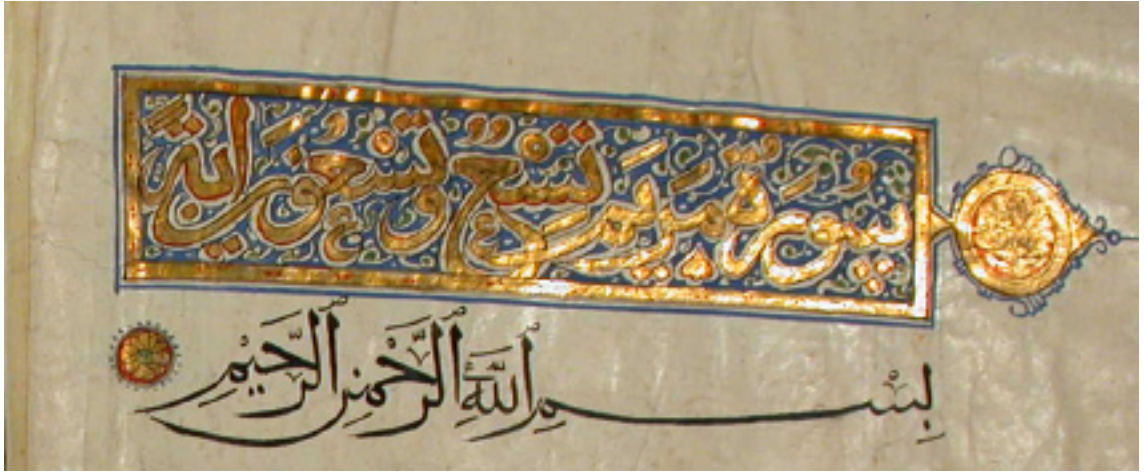 سورة مريم تسع وتسعون اية
بِسْمِ اللَّهِ الرَّحْمٰنِ الرَّحِيْمِ